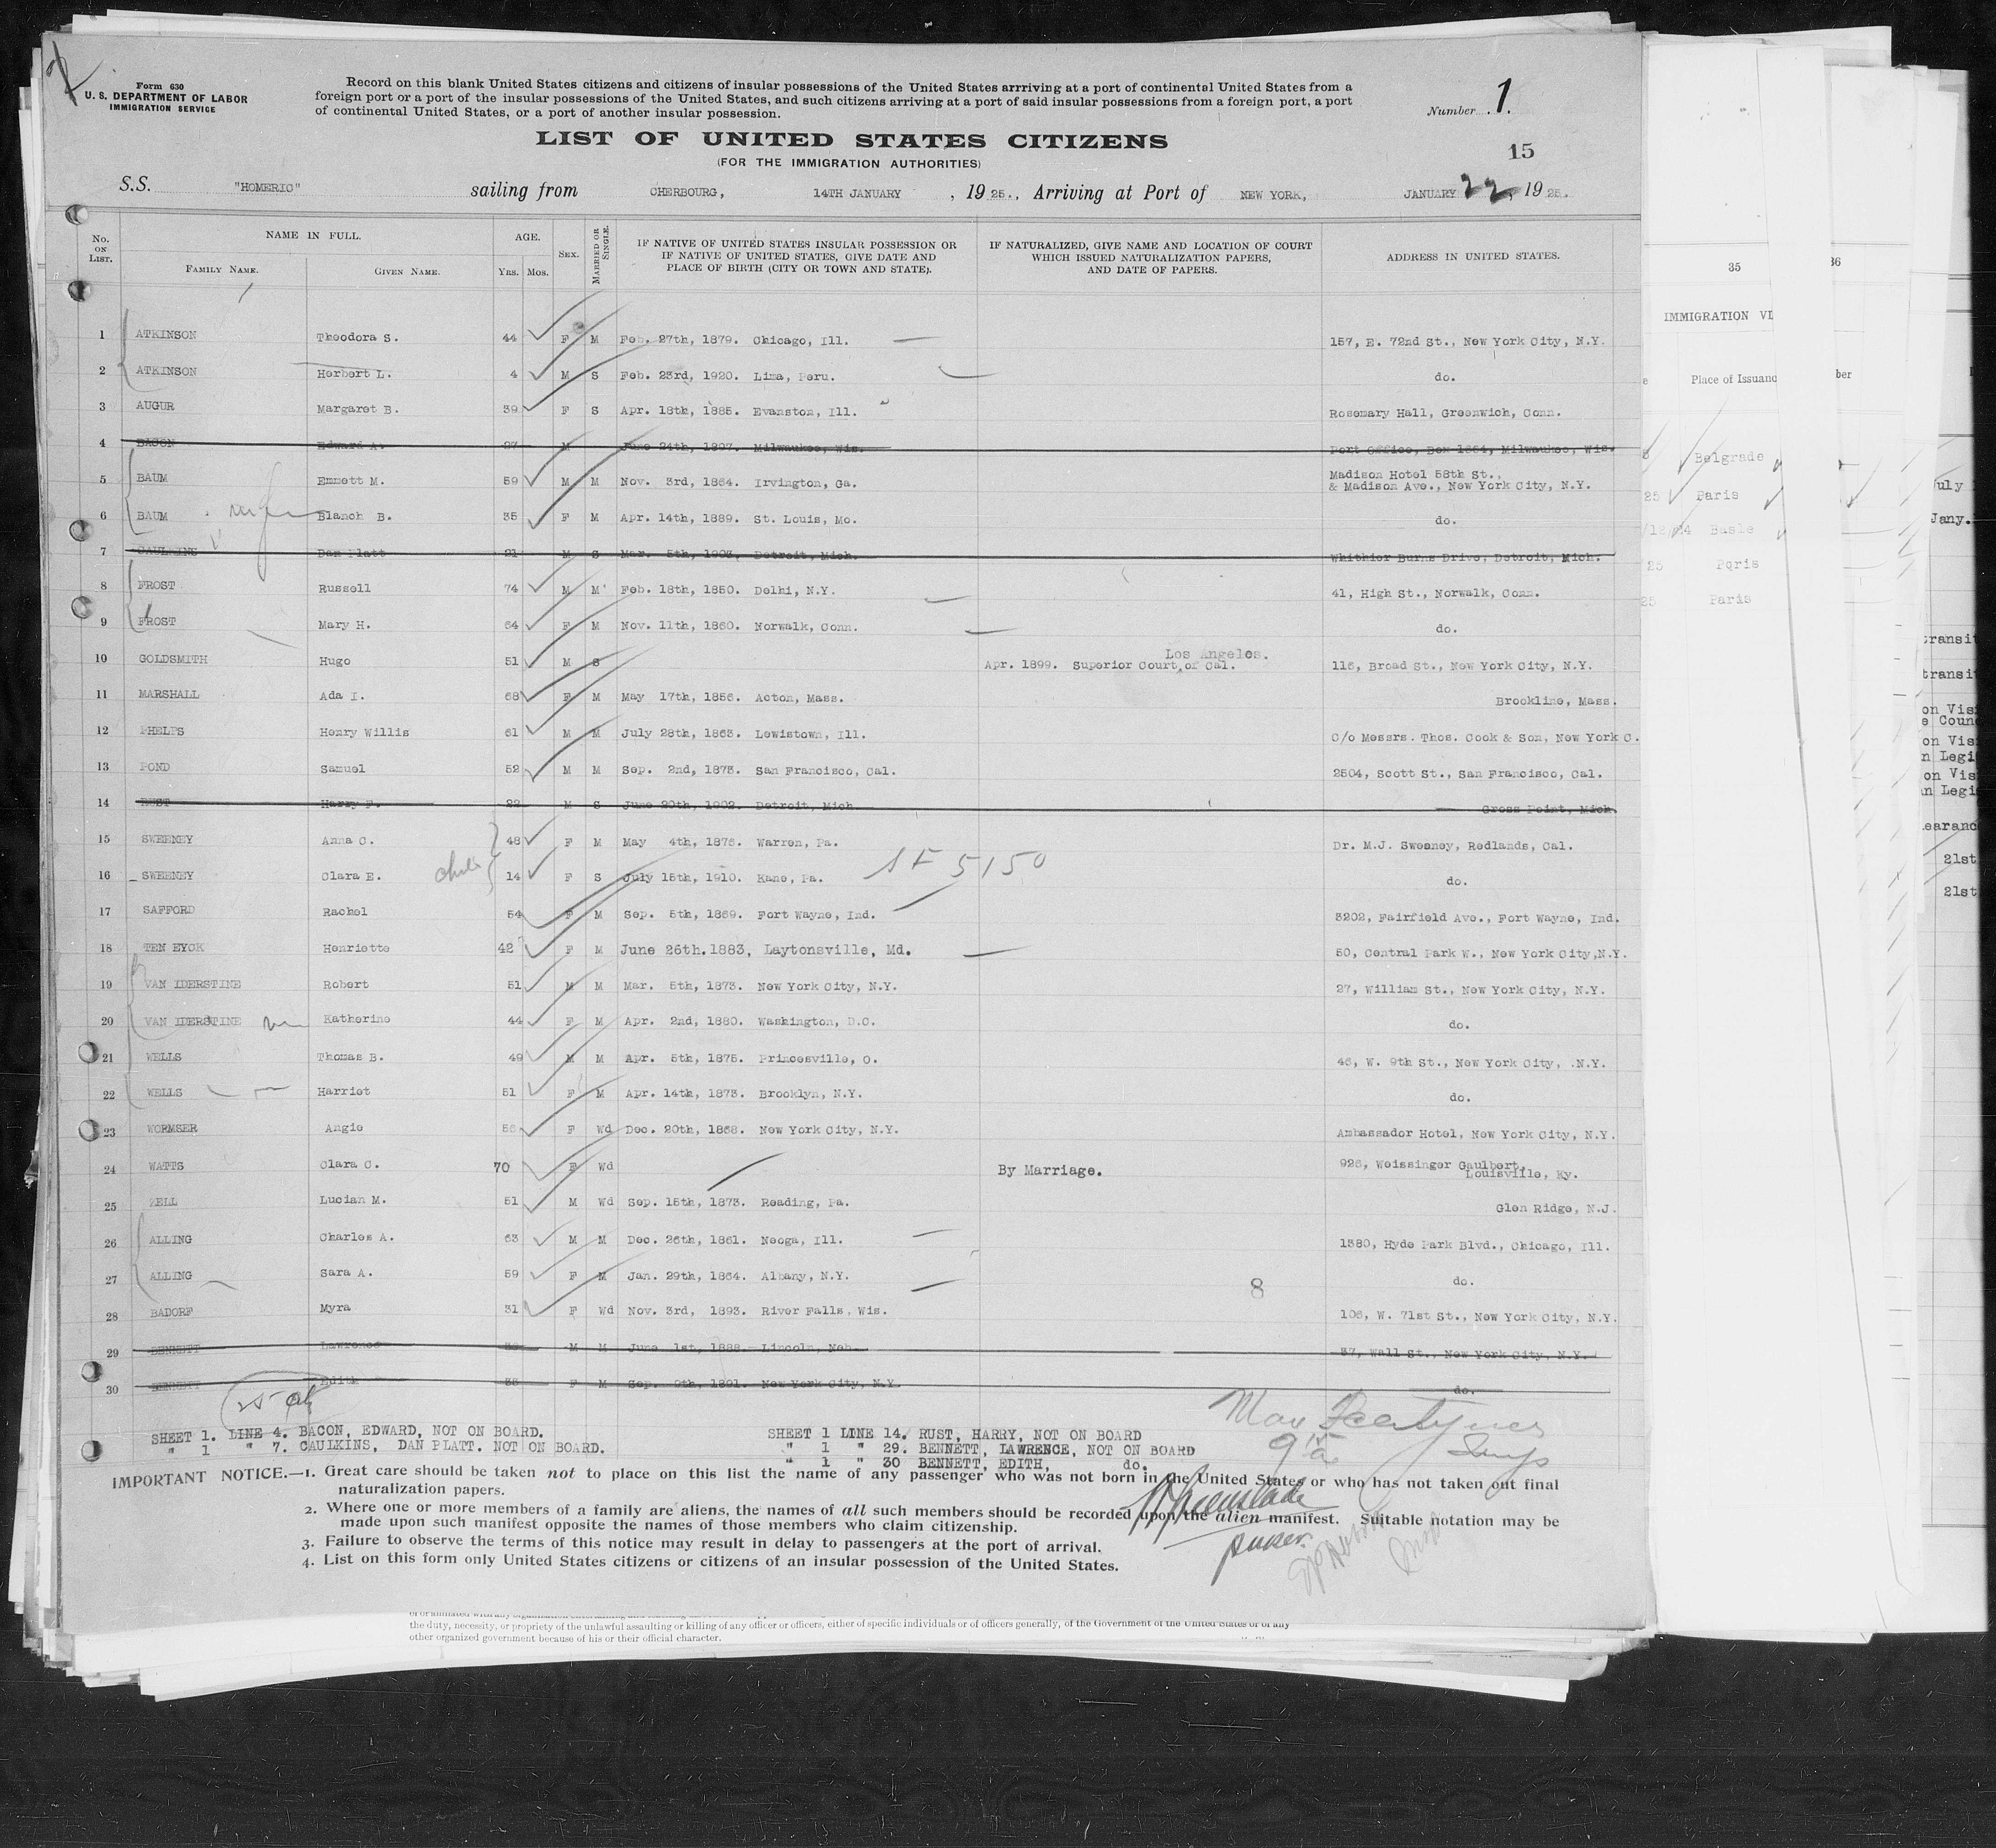 Form 630
U. S. DEPARTMENT OF LABOR
IMMIGRATION SERVICE
Record on this blank United States citizens and citizens of insular possessions of the United States arrriving at a port of continental United States from a
foreign port or a port of the insular possessions of the United States, and such citizens arriving at a port of said insular possessions from a foreign port, a port
of continental United States, or a port of another insular possession.
Number 1.
LIST OF UNITED STATES CITIZENS
(FOR THE IMMIGRATION AUTHORITIES)
15
S.S. "HOMERIC" sailing from CHERBOURG, 14TH JANUARY, 1925., Arriving at Port of NEW YORK, JANUARY 22, 1925.
No. ON LIST.
NAME IN FULL.
FAMILY NAME. GIVEN NAME.
AGE.
YRS. MOS.
SEX.
MARRIED OR SINGLE.
IF NATIVE OF UNITED STATES INSULAR POSSESSION OR
IF NATIVE OF UNITED STATES, GIVE DATE AND
PLACE OF BIRTH (CITY OR TOWN AND STATE).
IF NATURALIZED, GIVE NAME AND LOCATION OF COURT
WHICH ISSUED NATURALIZATION PAPERS,
AND DATE OF PAPERS.
ADDRESS IN UNITED STATES.
1 ATKINSON Theodora S. 44 F M Feb. 27th, 1879. Chicago, Ill. 157, E. 72nd St., New York City, N.Y.
2 ATKINSON Herbert L. 4 M S Feb. 23rd, 1920. Lima, Peru. do.
3 AUGUR Margaret B. 39 F S Apr. 18th, 1885. Evanston, Ill. Rosemary Hall, Greenwich, Conn.
4 BACON Edward A. 27 M June 24th, 1897. Milwaukee, Wis. Port Office, Box 1664, Milwaukee, Wis.
5 BAUM Emmett M. 59 M M Nov. 3rd, 1864. Irvington, Ga. Madison Hotel 58th St.,
& Madison Ave., New York City, N.Y.
6 BAUM Blanch B. 35 F M Apr. 14th, 1889. St. Louis, Mo. do.
7 CAULKINS Dan Platt 21 M S Mar. 5th, 1903, Detroit, Mich. Whithier Burns Drive, Detroit, Mich.
8 FROST Russell 74 M M Feb. 18th, 1850. Delhi, N.Y. 41, High St., Norwalk, Conn.
9 FROST Mary H. 64 F M Nov. 11th, 1860. Norwalk, Conn. do.
10 GOLDSMITH Hugo 51 M S Apr. 1899. Superior Court, of Cal. Los Angeles. 115, Broad St., New York City, N.Y.
11 MARSHALL Ada I. 68 F M May 17th, 1856. Acton, Mass. Brookline, Mass.
12 PHELPS Henry Willis 61 M M July 28th, 1863. Lewistown, Ill. C/o Messrs. Thos. Cook & Son, New York C.
13 POND Samuel 52 M M Sep. 2nd, 1873. San Francisco, Cal. 2504, Scott St., San Francisco, Cal.
14 RUST Harry F. 22 M S June 20th, 1902. Detroit, Mich Gross Point, Mich.
15 SWEENEY Anna C. 48 F M May 4th, 1876. Warren, Pa. Dr. M.J. Sweeney, Redlands, Cal.
16 SWEENEY Clara E. 14 F S July 15th, 1910. Kane, Pa. SF 5150 do.
17 SAFFORD Rachel 54 F M Sep. 5th, 1869. Fort Wayne, Ind. 3202, Fairfield Ave., Fort Wayne, Ind.
18 TEN EYCK Henriette 42 F M June 26th. 1883, Laytonsville, Md. 50, Central Park W., New York City, N.Y.
19 VAN IDERSTINE Robert 51 M M Mar. 5th, 1873. New York City, N.Y. 27, William St., New York City, N.Y.
20 VAN IDERSTINE Katherine 44 F M Apr. 2nd, 1880. Washington, D.C. do.
21 WELLS Thomas B. 49 M M Apr. 5th, 1875. Princesville, O. 46, W. 9th St., New York City, .N.Y.
22 WELLS Harriet 51 F M Apr. 14th, 1873. Brooklyn, N.Y. do.
23 WORMSER Angie 56 F Wd Dec. 20th, 1868. New York City, N.Y. Ambassador Hotel, New York City, N.Y.
24 WATTS Clara C. 70 F Wd By Marriage. 925, Weissinger Gaulbert,
Louisville, Ky.
25 ZELL Lucian M. 51 M Wd Sep. 15th, 1873. Reading, Pa. Glen Ridge, N.J.
26 ALLING Charles A. 63 M M Dec. 26th, 1861. Neoga, Ill. 1380, Hyde Park Blvd., Chicago, Ill.
27 ALLING Sara A. 59 F M Jan. 29th, 1864. Albany, N.Y. do.
8
28 BADORF Myra 31 F Wd Nov. 3rd, 1893. River Falls, Wis. 106, W. 71st St., New York City, N.Y.
29 BENNETT Lawrence M M June 1st, 1888. Lincoln, Neb. 37, Wall St., New York City, N.Y.
30 BENNETT Edith 33 F M Sep. 9th, 1891. New York City, N.Y. do.
SHEET 1. LINE 4. BACON, EDWARD, NOT ON BOARD.
" 1 " 7. CAULKINS, DAN PLATT. NOT ON BOARD.
SHEET 1 LINE 14. RUST, HARRY, NOT ON BOARD
" 1 " 29. BENNETT, LAWRENCE, NOT ON BOARD
" 1 " 30 BENNETT, EDITH, do.
IMPORTANT NOTICE.—1. Great care should be taken not to place on this list the name of any passenger who was not born in the United States or who has not taken out final
naturalization papers.
2. Where one or more members of a family are aliens, the names of all such members should be recorded upon the alien manifest. Suitable notation may be
made upon such manifest opposite the names of those members who claim citizenship.
3. Failure to observe the terms of this notice may result in delay to passengers at the port of arrival.
4. List on this form only United States citizens or citizens of an insular possession of the United States.
Purser.
the duty, necessity, or propriety of the unlawful assaulting or killing of any officer or officers, either of specific individuals or of officers generally, of the Government of the United States or of any
other organized government because of his or their official character.
35
36
IMMIGRATION VI
Place of Issuanc
ber
Belgrade
25 Paris
Basle
25 Paris
25 Paris
uly
Jany.
transit
transit
on Vis
e Coun
on Vis
n Legi
on Vis
an Legi
earanc
21st
21st